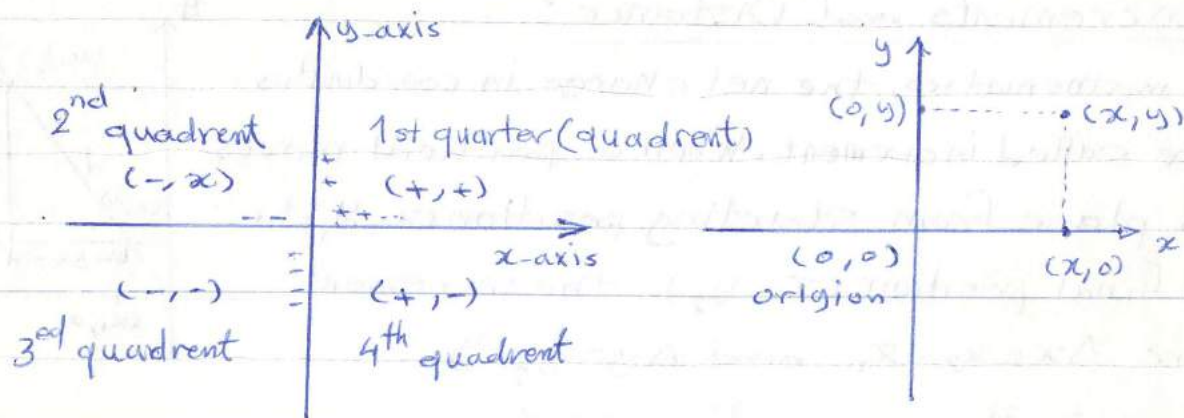 y-axis
2nd quadrent
1st quarter (quadrent)
(-, x)
(+, +)
+
+
-- ++...
x-axis
=
=
=
(-, -)
(+, -)
3rd quadrent
4th quadrent
y
(0, y)
(x, y)
(0, 0)
(x, 0)
x
origion